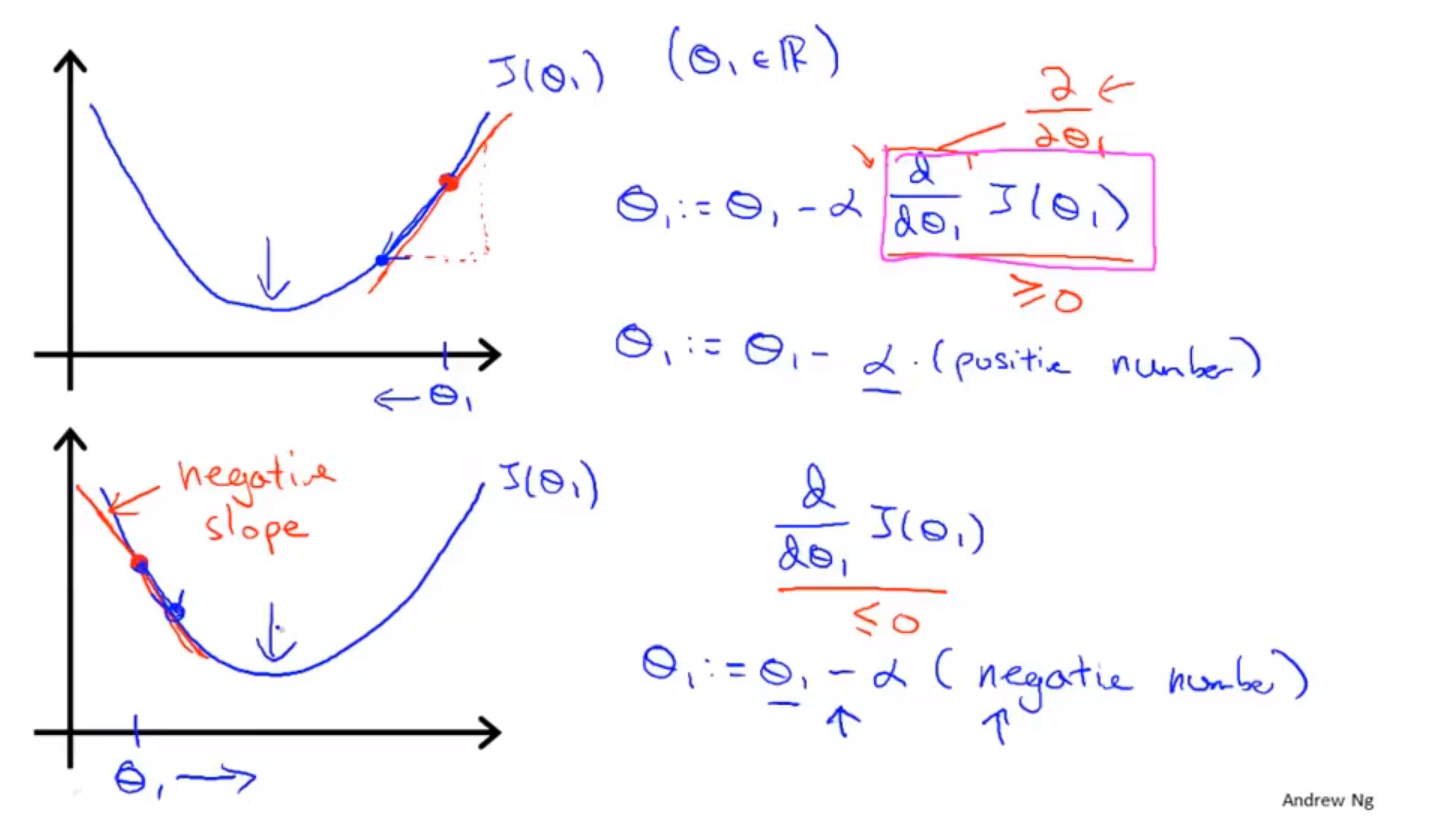 J(θ₁) (θ₁ ∈ ℝ)
∂ ←
∂θ₁
θ₁ := θ₁ - α d/dθ₁ J(θ₁)
≥ 0
θ₁ := θ₁ - α · (positive number)
← θ₁
negative
slope
J(θ₁)
d/dθ₁ J(θ₁)
≤ 0
θ₁ := θ₁ - α (negative number)
θ₁ →
Andrew Ng